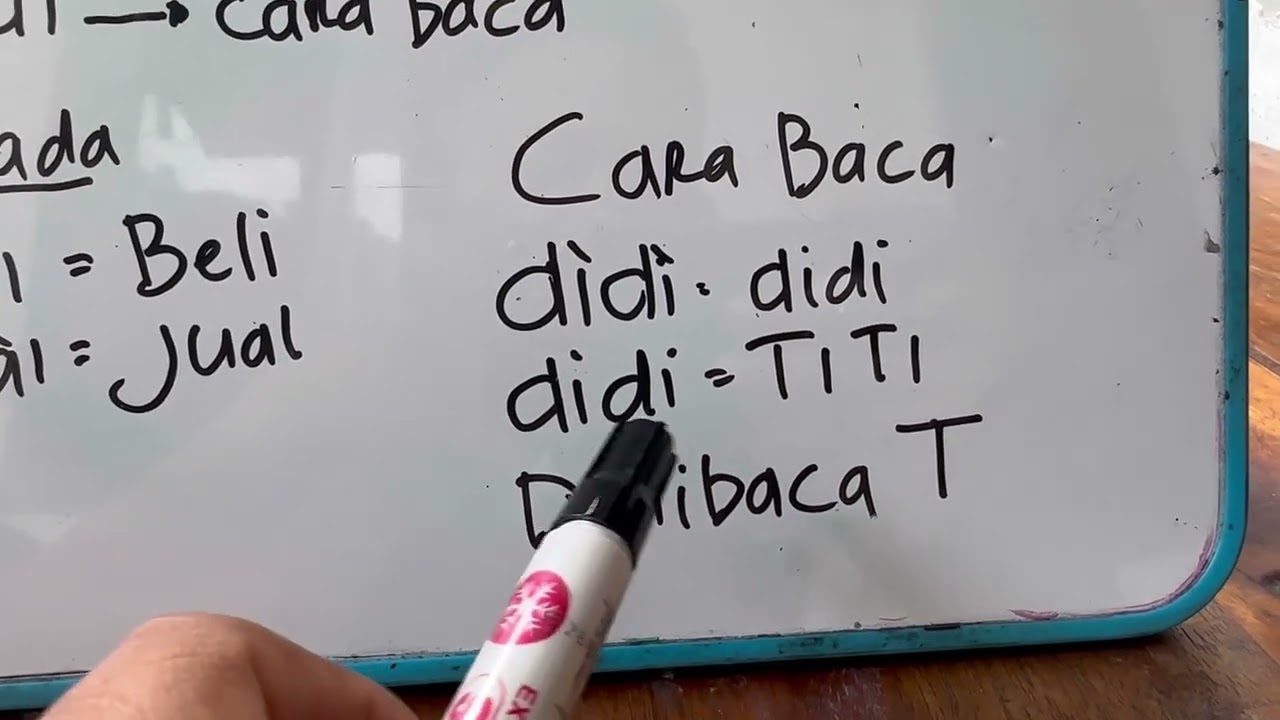 → Cara baca
ada
= Beli
= Jual
Cara Baca
dìdì = didi
didi = TITI
D dibaca T
EX